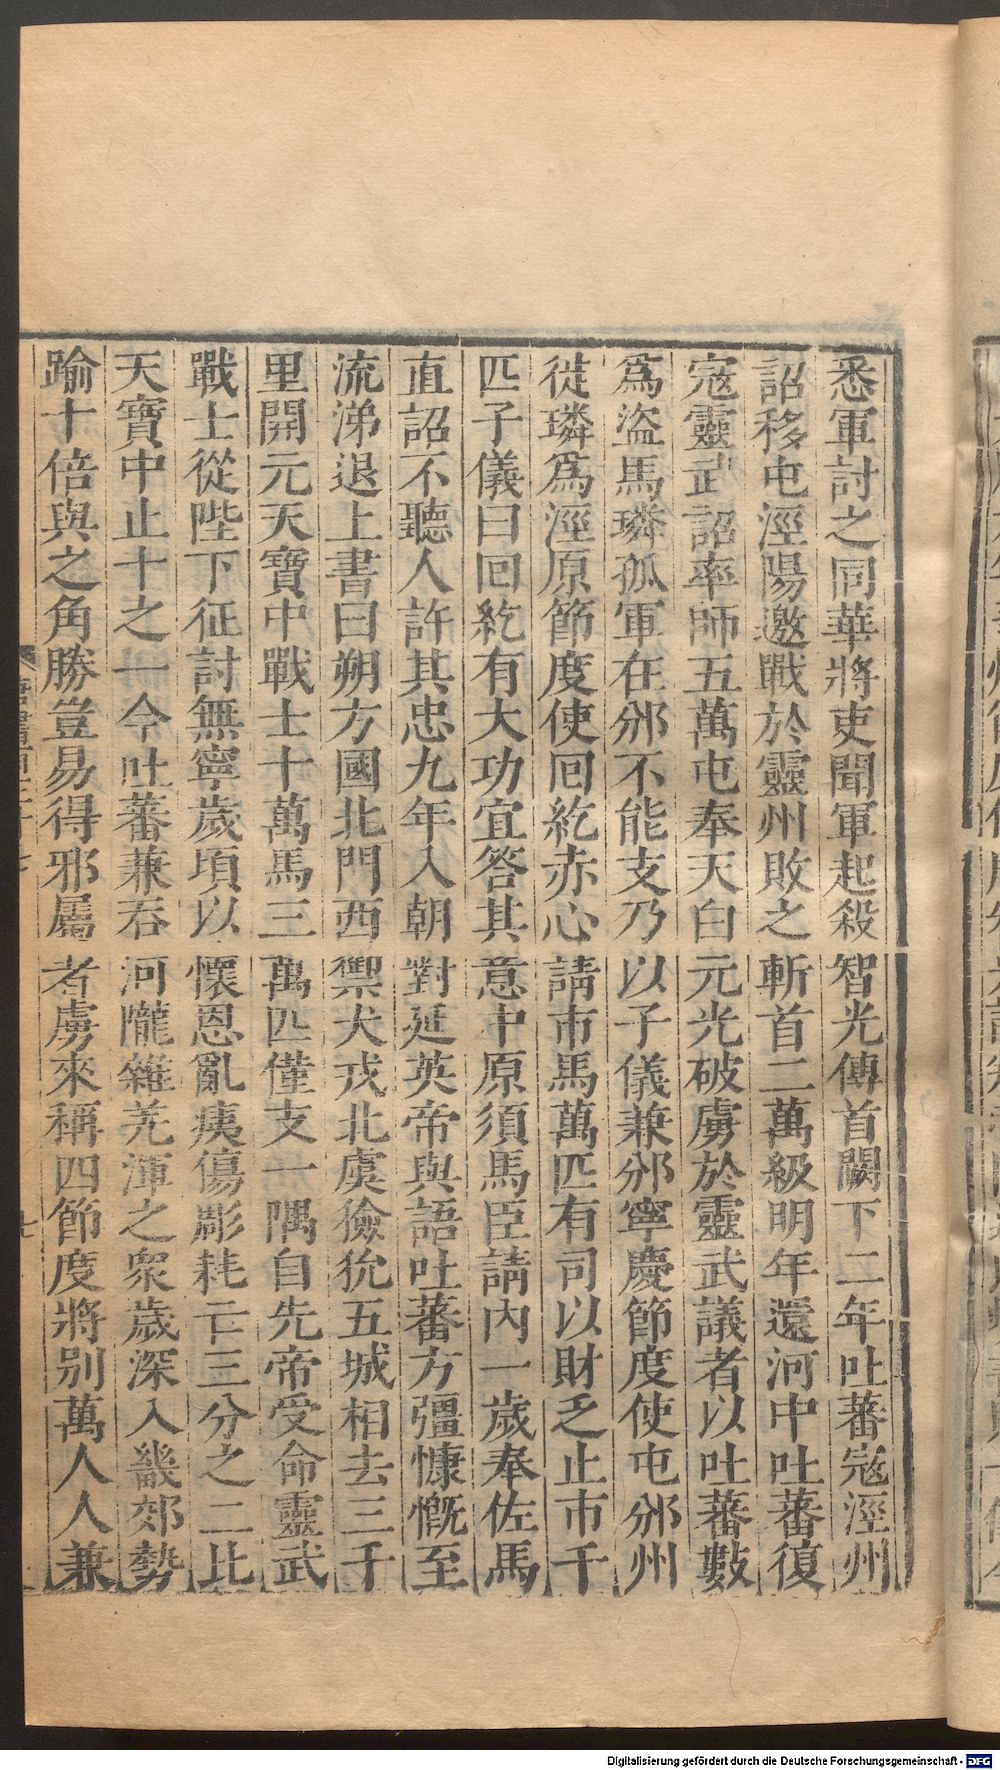 悉軍討之同華將吏聞軍起殺智光傳首闕下二年吐蕃寇涇州
詔移屯涇陽邀戰於靈州敗之斬首二萬級明年還河中吐蕃復
寇靈武詔率師五萬屯奉天白元光破虜於靈武議者以吐蕃數
爲盜馬璘孤軍在邠不能支乃以子儀兼邠寧慶節度使屯邠州
徙璘爲涇原節度使回紇赤心請市馬萬匹有司以財乏止市千
匹子儀曰回紇有大功宜答其意中原須馬臣請內一歲奉佐馬
直詔不聽人許其忠九年入朝對延英帝與語吐蕃方彊慷慨至
流涕退上書曰朔方國北門西禦犬戎北虞獫狁五城相去三千
里開元天寶中戰士十萬馬三萬匹僅支一隅自先帝受命靈武
戰士從陛下征討無寧歲頃以懷恩亂痍傷彫耗亡三分之二比
天寶中止十之一今吐蕃兼吞河隴雜羌渾之衆歲深入畿郊勢
踰十倍與之角勝豈易得邪屬者虜來稱四節度將别萬人人兼
Digitalisierung gefördert durch die Deutsche Forschungsgemeinschaft - DFG